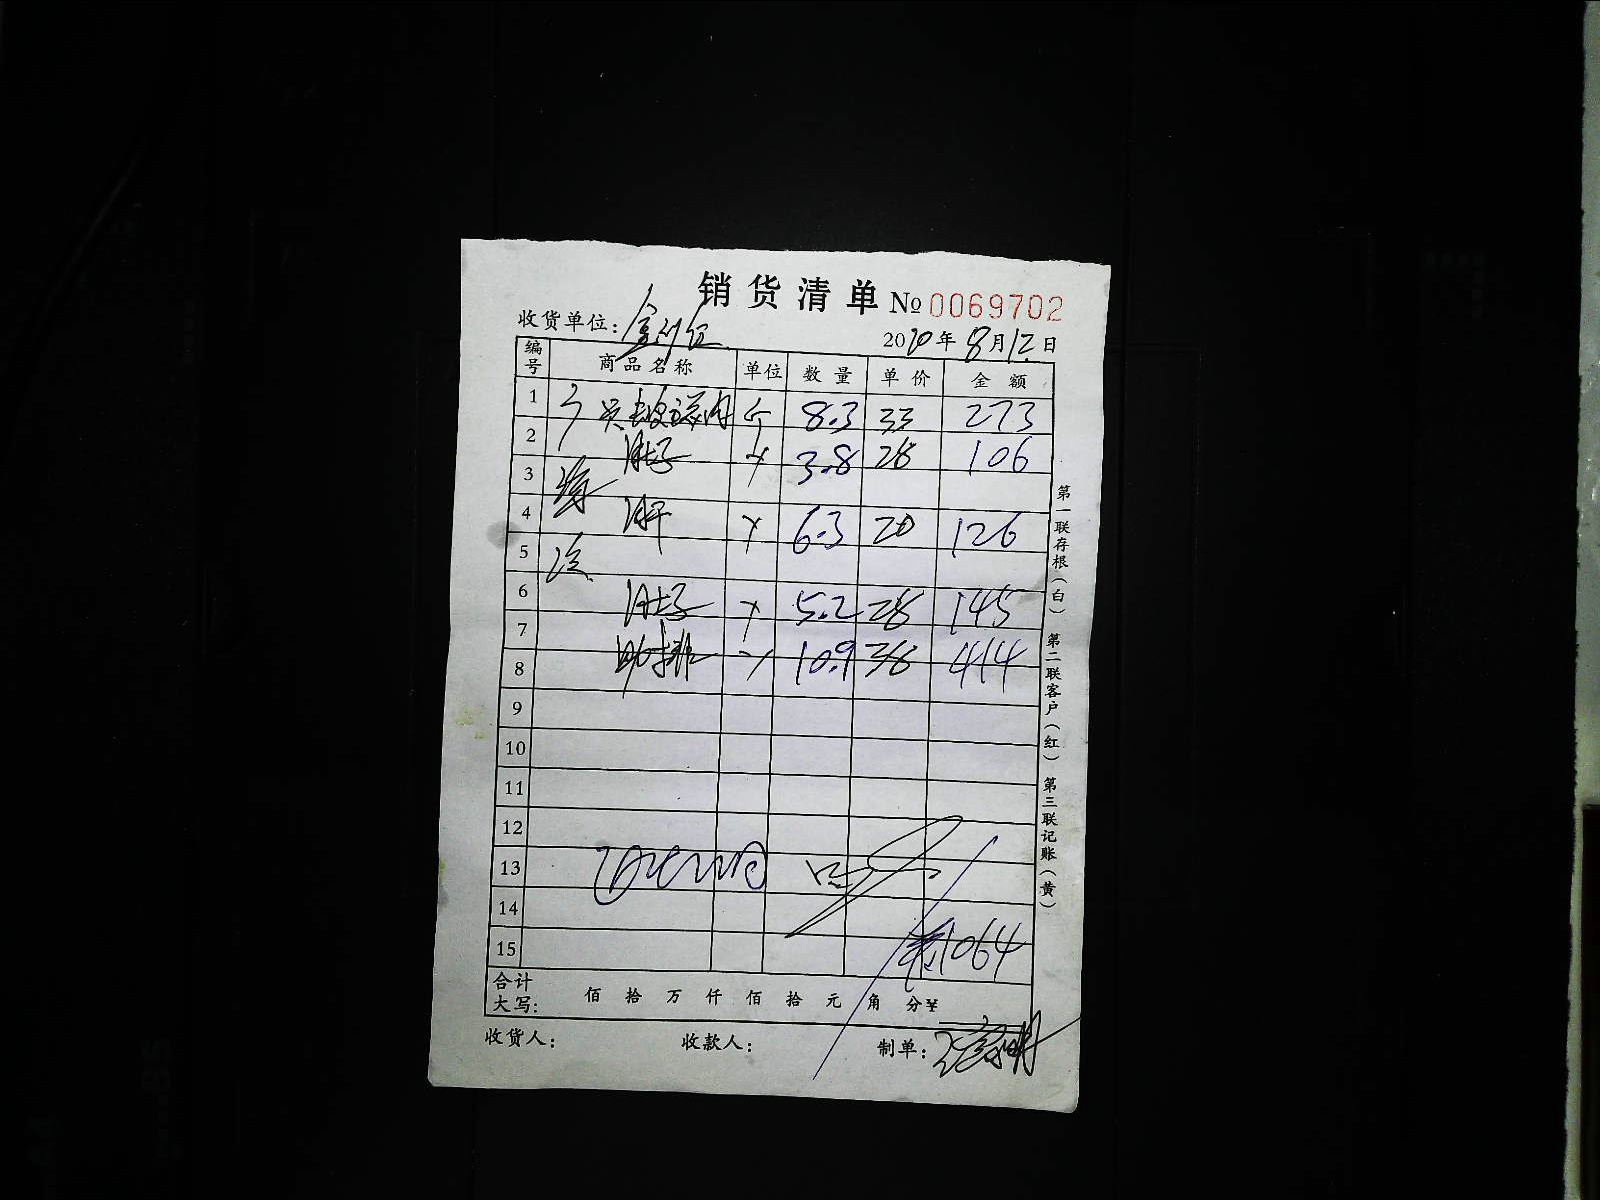 销货清单 № 0069702
收货单位:
2020年8月12日
编号 商品名称 单位 数量 单价 金额
1 8.3 33 273
2 肚子 3.8 28 106
3
4 肝 6.3 20 126
5
6 肚子 5.2 28 145
7 肋排 10.9 38 414
8
9
10
11
12
13
14
15 1064
合计大写: 佰 拾 万 仟 佰 拾 元 角 分 ¥
收货人: 收款人: 制单:
第一联存根(白) 第二联客户(红) 第三联记账(黄)